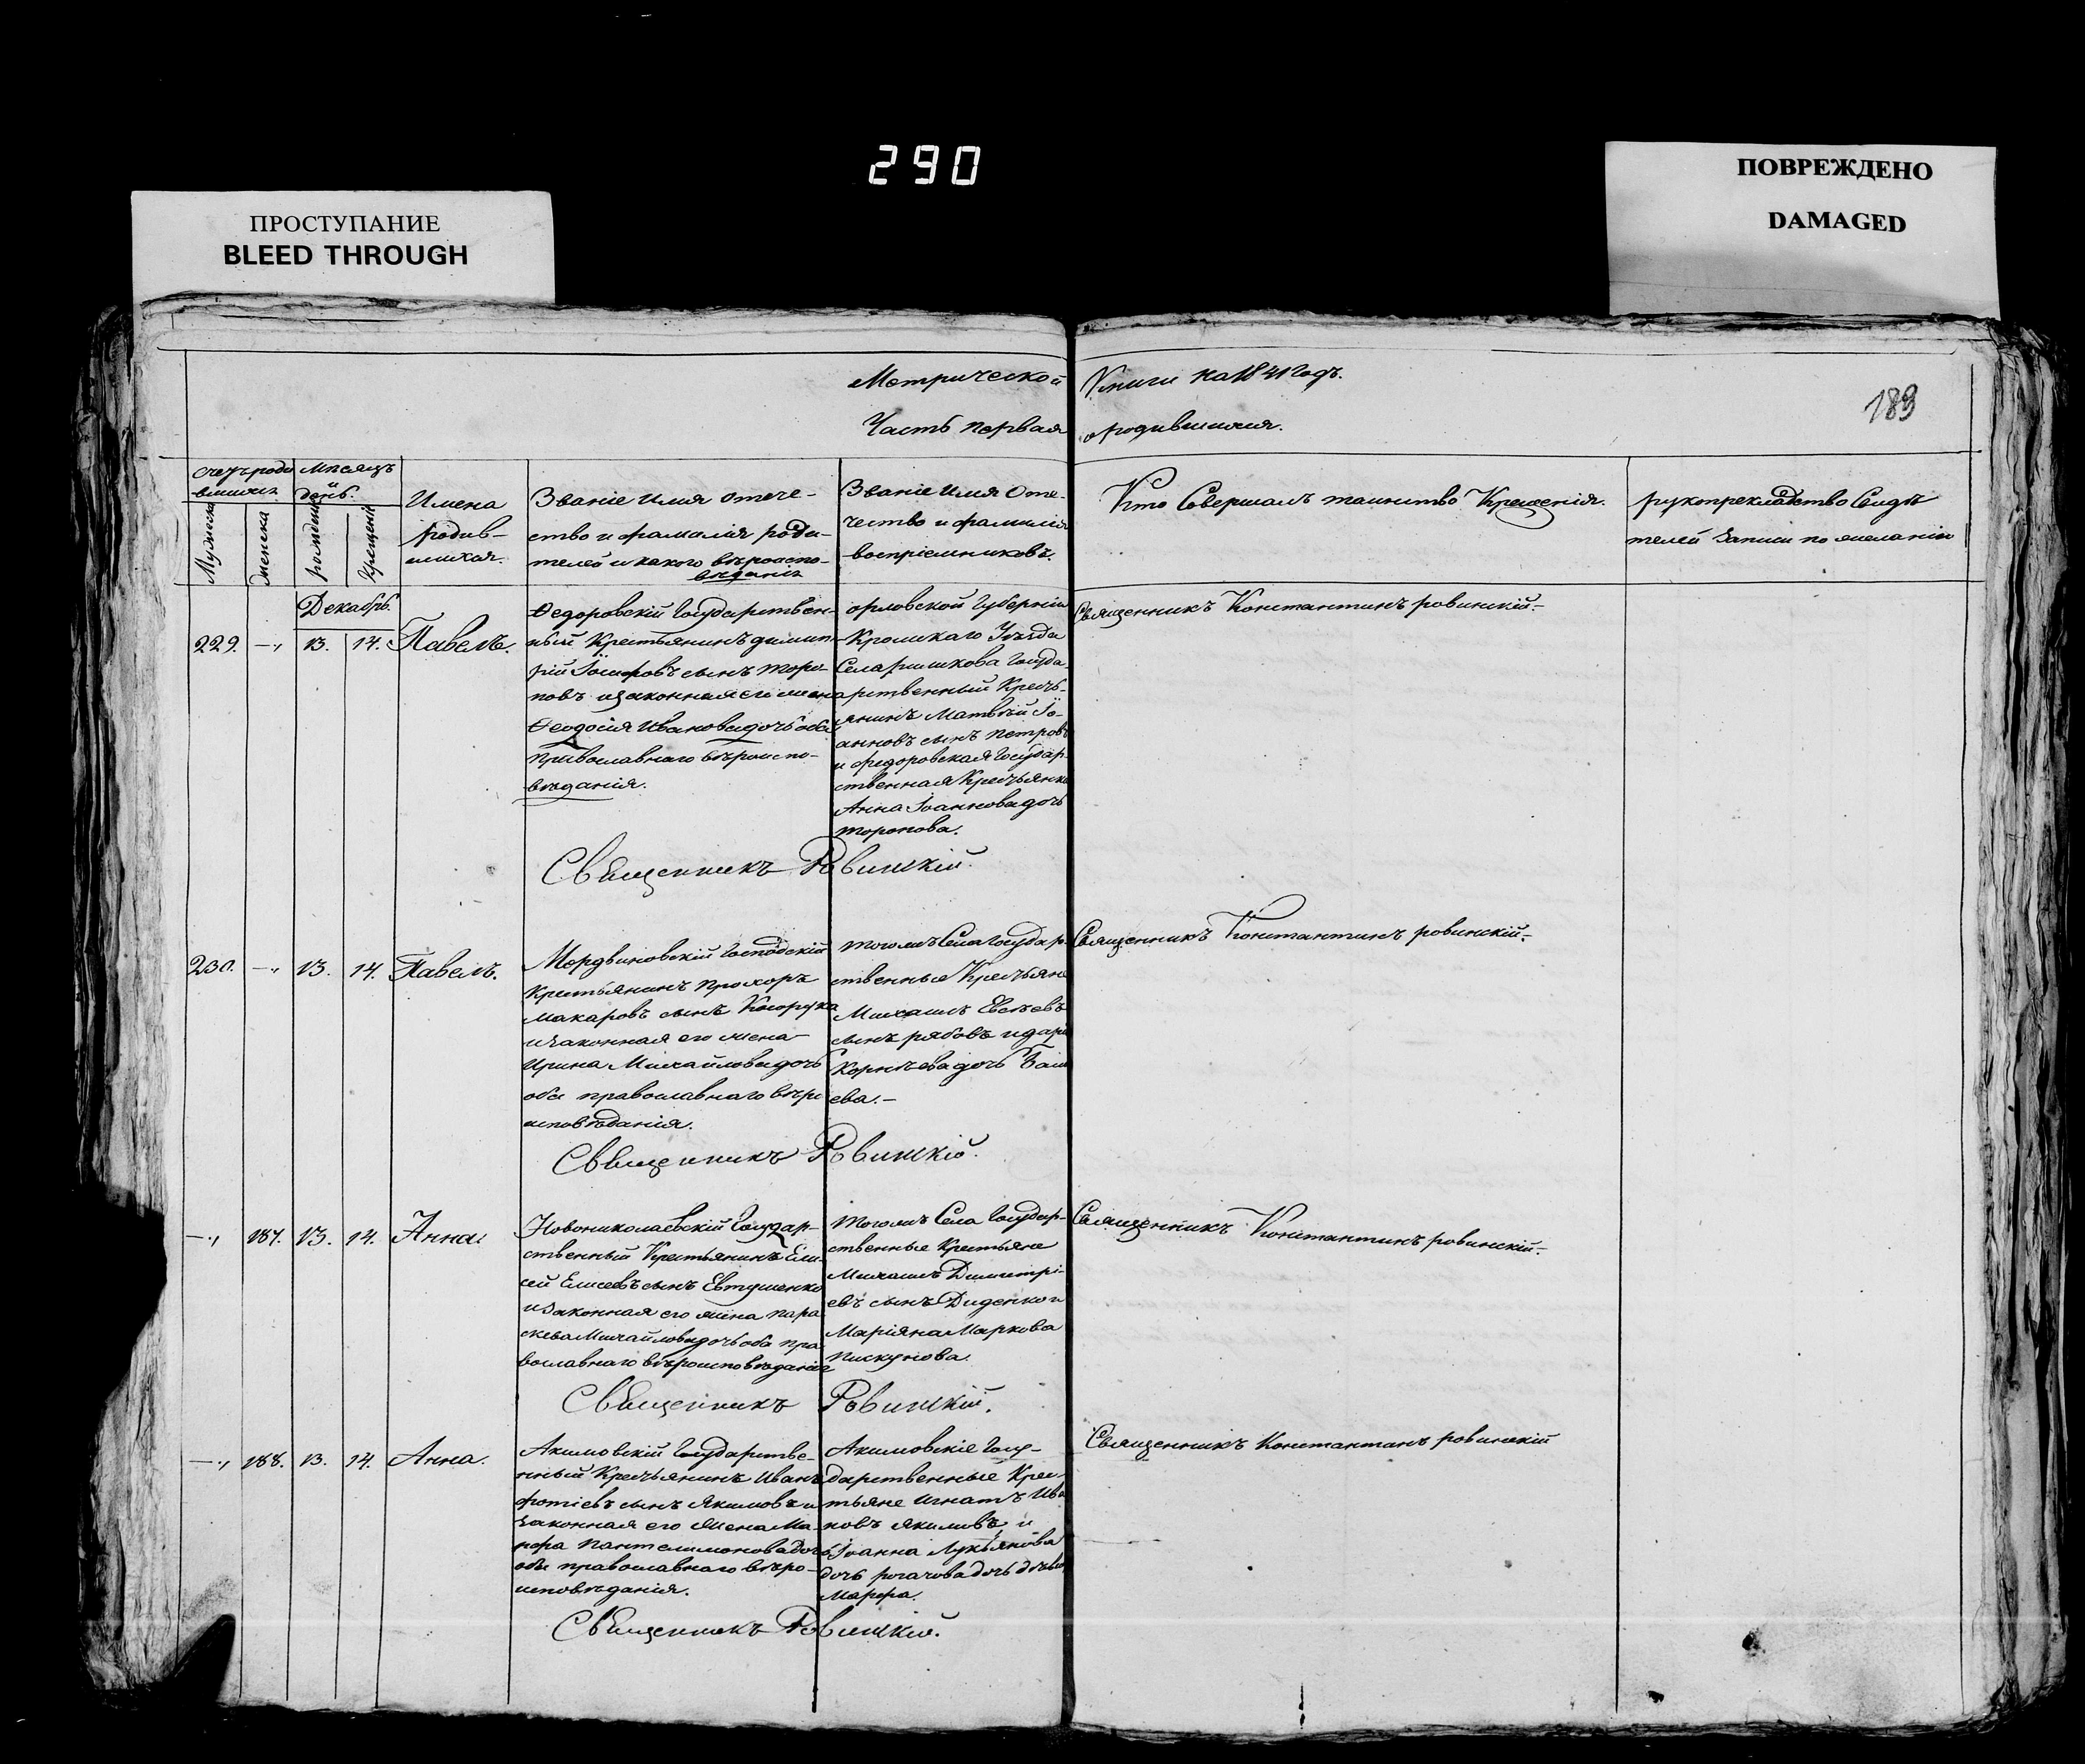 290
ПРОСТУПАНИЕ
BLEED THROUGH
ПОВРЕЖДЕНО
DAMAGED
Метрической Книги на 1841 годъ.
Часть первая о родившихся.
189
Счетъ роди
вшихся
Мужеска
женска
Мѣсяцъ
и
день.
рожденія
Крещенія
Имена
родив-
шихся.
Званіе имя отече-
ство и фамилія роди-
телей и какого вѣроиспо-
вѣданія
Званіе имя Оте-
чество и фамилія
воспріемниковъ.
Кто Совершалъ таинство Крещенія.
рукоприкладство Свидѣ
телей Записи по желанію
Декабрь.
229. —„ 13. 14. Павелъ.
Ѳедоровскій Государствен-
ный Крестьянинъ димит
рій Іосифовъ сынъ Торо-
повъ изаконная его жена
Ѳеодосія Ивановадочь оба
Православнаго вѣроиспо-
вѣданія.
орловской Губерніи
Кромскаго Уѣзда
Села Госуда-
рственный Кресть-
янинъ Матвѣй Іо-
анновъ сынъ петровъ
и федоровская Государ-
ственная Крестьянка
Анна Іоанновадочь
торопова.
Священникъ Константинъ ровинскій.-
Священникъ Ровинскій.
230. —„ 13. 14. Павелъ.
Мордвиновскій Господскій
Крестьянинъ Прохоръ
Макаровъ сынъ Косорука
изаконная его жена
Ирина Михайловадочь
оба православнаго вѣро
исповѣданія.
тогожъ Села Государ-
ственные Крестьяне
Михаилъ Евсѣевъ
сынъ рябовъ идарія
Корнѣевадочь
ева.-
Священникъ Константинъ ровинскій.-
Священникъ Ровинскій.
—„ 187. 13. 14. Анна.
Новониколаевскій Государ-
ственный Крестьянинъ Ели-
сей Елисеевъ сынъ Евтушенко
изаконная его жена пара
скева Михайловадочь оба пра-
вославнаго вѣроисповѣданія
тогожъ Села Государ-
ственные Крестьяне
Михаилъ Димитрі-
евъ сынъ Диденко и
Маріяна Маркова
пискунова.
Священникъ Константинъ ровинскій.-
Священникъ Ровинскій.
—„ 188. 13. 14. Анна.
Акимовскій Государстве-
нный Крестьянинъ Иванъ
фотіевъ сынъ Якимовъ и
законная его жена Ма-
рфа Пантелимоновадочь
оба православнаго вѣро-
исповѣданія.
Акимовскіе Госу-
дарственные Крес-
тьяне Игнатъ Ива
новъ якимовъ и
Іоанна Лукьянова
дочь рогачова дочь
Марфа.
Священникъ Константинъ ровинскій
Священникъ Ровинскій.